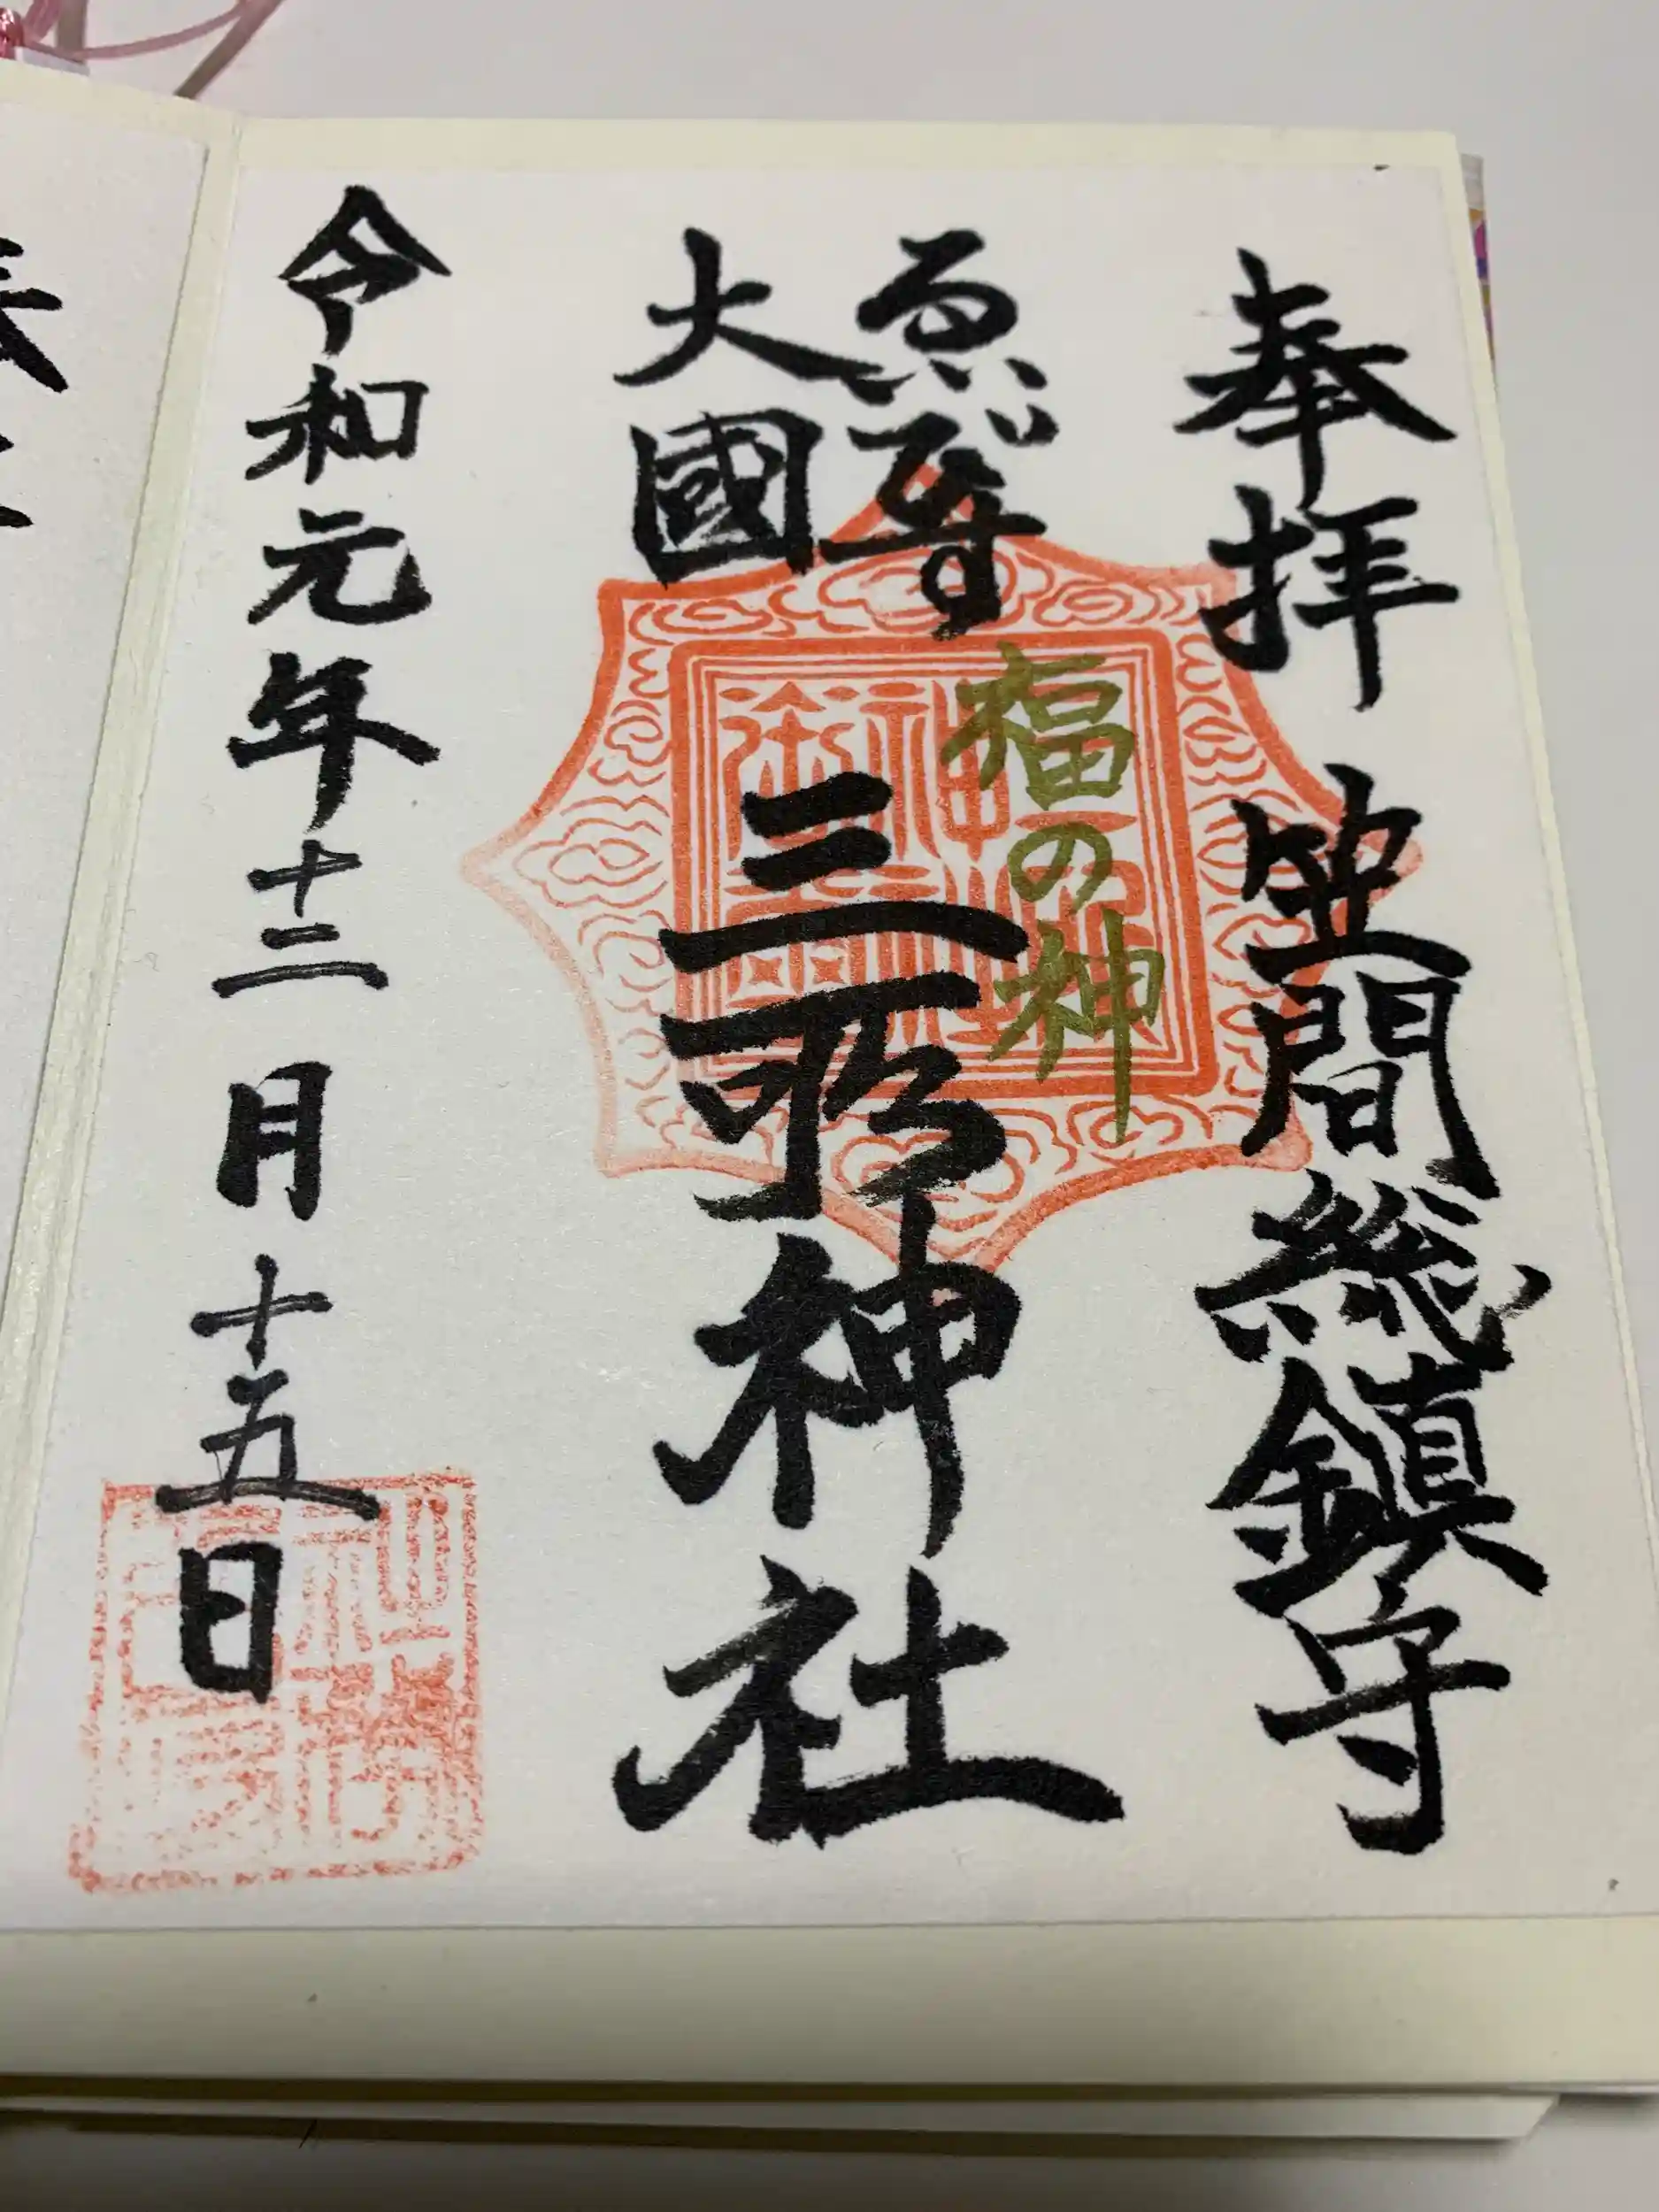 奉拝 笠間総鎮守
恵比寿
大國
福の神
三所神社
令和元年十二月十五日